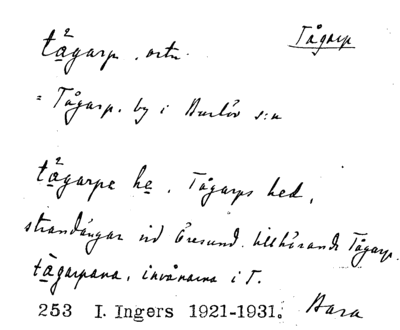 Tågarp
tågarp, ortn.
= Tågarp, by i Burlöv s:n
tågarpa he, Tågarps hed,
strandängar vid Öresund tillhörande Tågarp.
tågarpana, invånarna i T.
253 I. Ingers 1921-1931. Bara